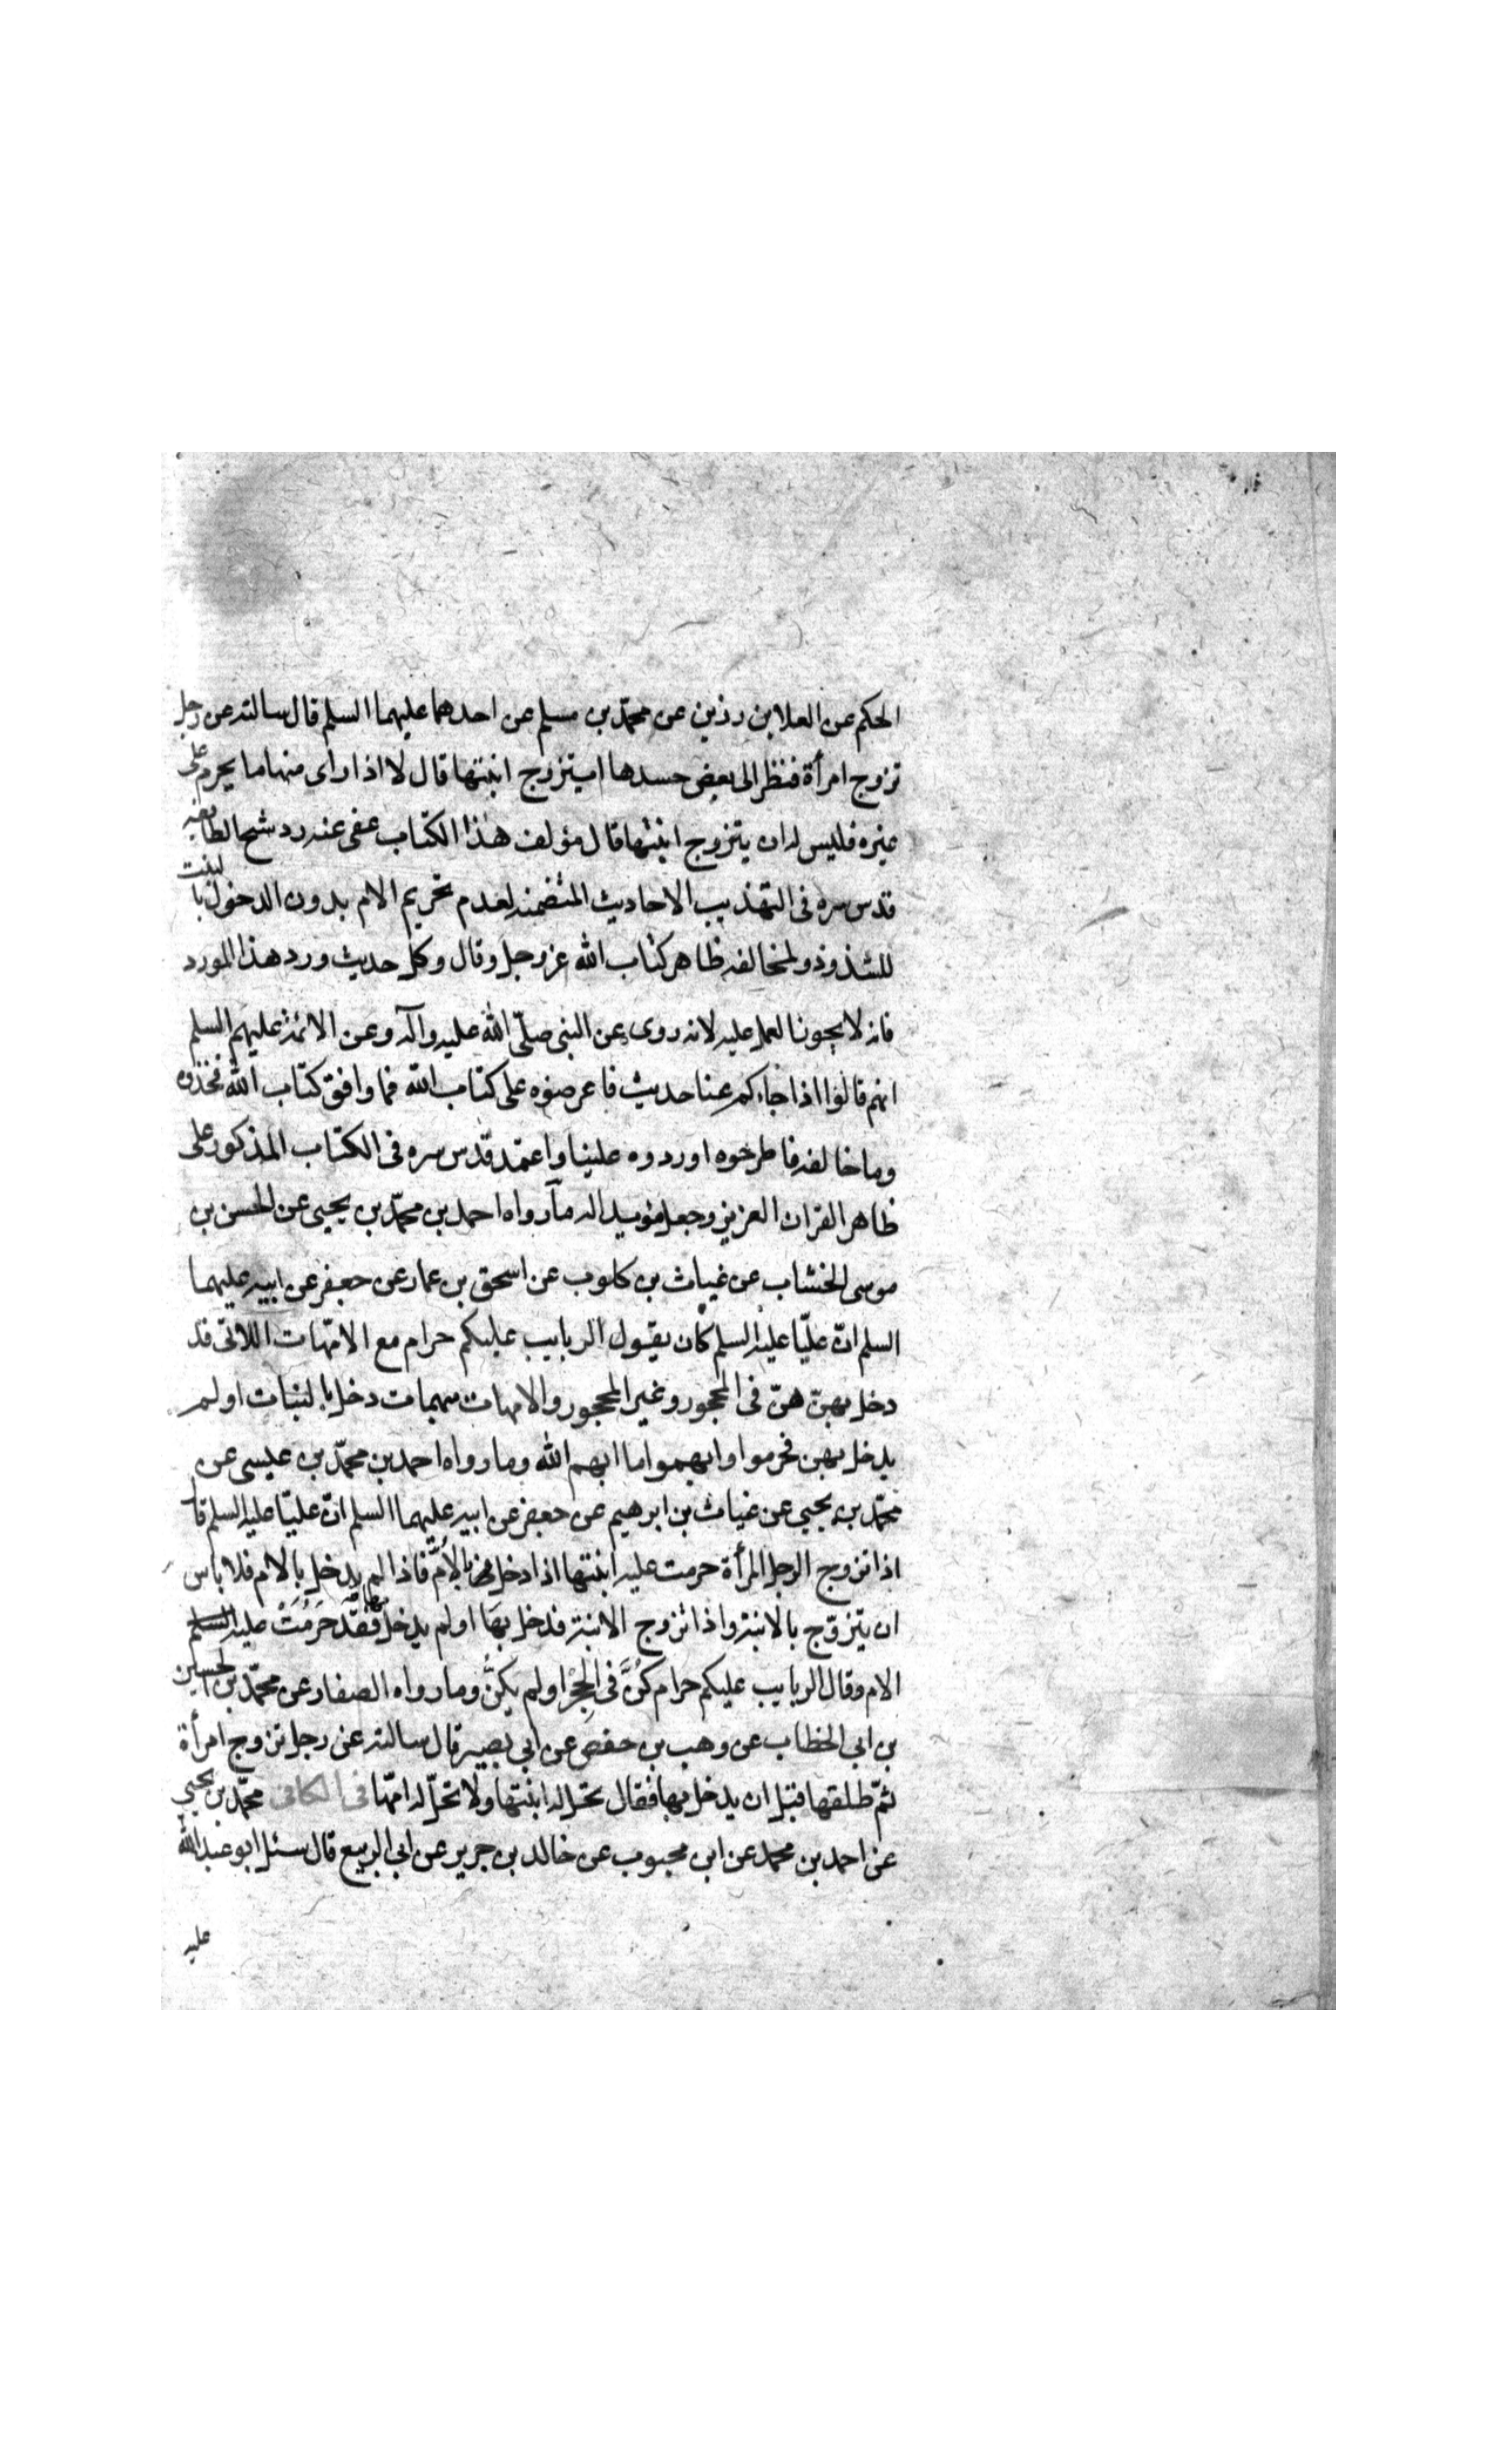 الحكم عن العلا بن رزين عن محمّد بن مسلم عن احدهما عليهما السلم قال سالته عن رجل
تزوج امرأة فنظر الى بعض جسدها ايتزوج ابنتها قال لا اذا راى منها ما يحرم على
غيره فليس له ان يتزوج ابنتها قال مؤلف هذا الكتاب عفى عنه رد شيخ الطايفه
قدس سره فى التهذيب الاحاديث المتضمنه لعدم تحريم الام بدون الدخول بالبنت
للشذوذ ولمخالفه ظاهر كتاب الله عز وجل وقال وكل حديث ورد هذا المورد
فانه لا يجوز العمل عليه لانه روى عن النبى صلّى الله عليه وآله وعن الائمة عليهم السلم
انهم قالوا اذا جاءكم عنا حديث فاعرضوه على كتاب الله فما وافق كتاب الله فخذوه
وما خالفه فاطرحوه او ردوه علينا واعتمد قدّس سره فى الكتاب المذكور على
ظاهر القران العزيز وجعل مؤيدا له ما رواه احمد بن محمّد بن يحيى عن الحسن بن
موسى الخشاب عن غياث بن كلوب عن اسحق بن عمار عن جعفر عن ابيه عليهما
السلم انّ عليّا عليه السلم كان يقول الربايب عليكم حرام مع الامّهات اللاتى قد
دخل بهنّ هنّ فى الحجور وغير الحجور والامهات مبهمات دخل بالبنات او لم
يدخل بهن فحرموا وابهموا ما ابهم الله وما رواه احمد بن محمّد بن عيسى عن
محمّد بن يحيى عن غياث بن ابرهيم عن جعفر عن ابيه عليهما السلم انّ عليّا عليه السلم قا
اذا تزوج الرجل المرأة حرمت عليه ابنتها اذا دخل بالاُمّ فاذا لم يدخل بالام فلا باس
ان يتزوّج بالابنة واذا تزوج الابنة فدخل بها او لم يدخل بها فقد حَرُمَتْ عليه
الام وقال الربايب عليكم حرام كُنَّ فى الحِجْر او لم يكنَّ وما رواه الصفار عن محمّد بن الحسين
بن ابى الخطاب عن وهب بن حفص عن ابى بصير قال سالته عن رجل تزوج امرأة
ثمّ طلقها قبل ان يدخل بها فقال تحل له ابنتها ولا تحلّ له امّها فى الكافى محمّد بن يحيى
عن احمد بن محمد عن ابن محبوب عن خالد بن جرير عن ابى الربيع قال سئل ابو عبد الله
عليه